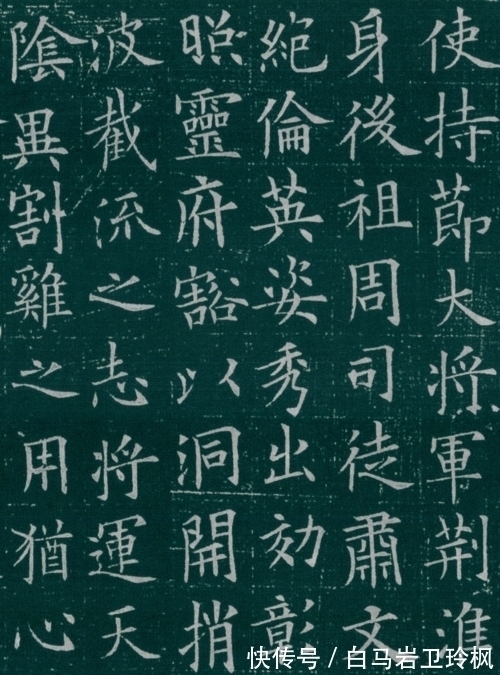 使持莭大將軍荊淮
身後祖周司徒肅文
絕倫英姿秀出効彰
照靈府豁以洞開捎
波截流之志將運天
陰異割雞之用猶心
快传号 / 白马岩卫玲枫